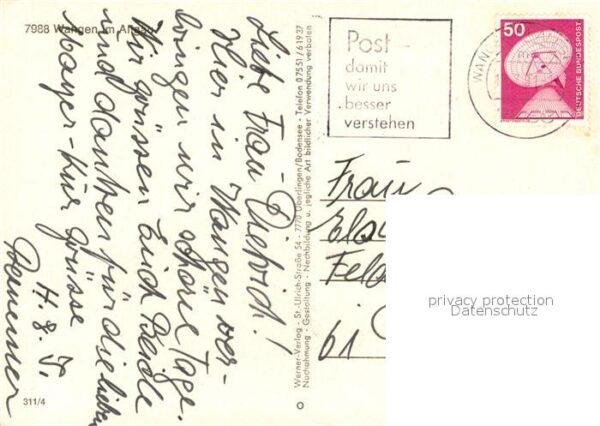 7988 Wangen im Allgäu
Liebe Frau Dietrich!
Hier in Wangen ver-
bringen wir schöne Tage.
Wir grüssen Euch Beide
und danken für die lieben
Mayer-Kur grüsse
H. & J.
311/4
Werner-Verlag - St.-Ulrich-Straße 54 - 7770 Überlingen/Bodensee - Telefon 07551/61937
Nachahmung - Gestaltung - Nachbildung u. jegliche Art bildlicher Verwendung verboten
Post
damit
wir uns
besser
verstehen
WANGEN
50
DEUTSCHE BUNDESPOST
Frau
61
privacy protection
Datenschutz